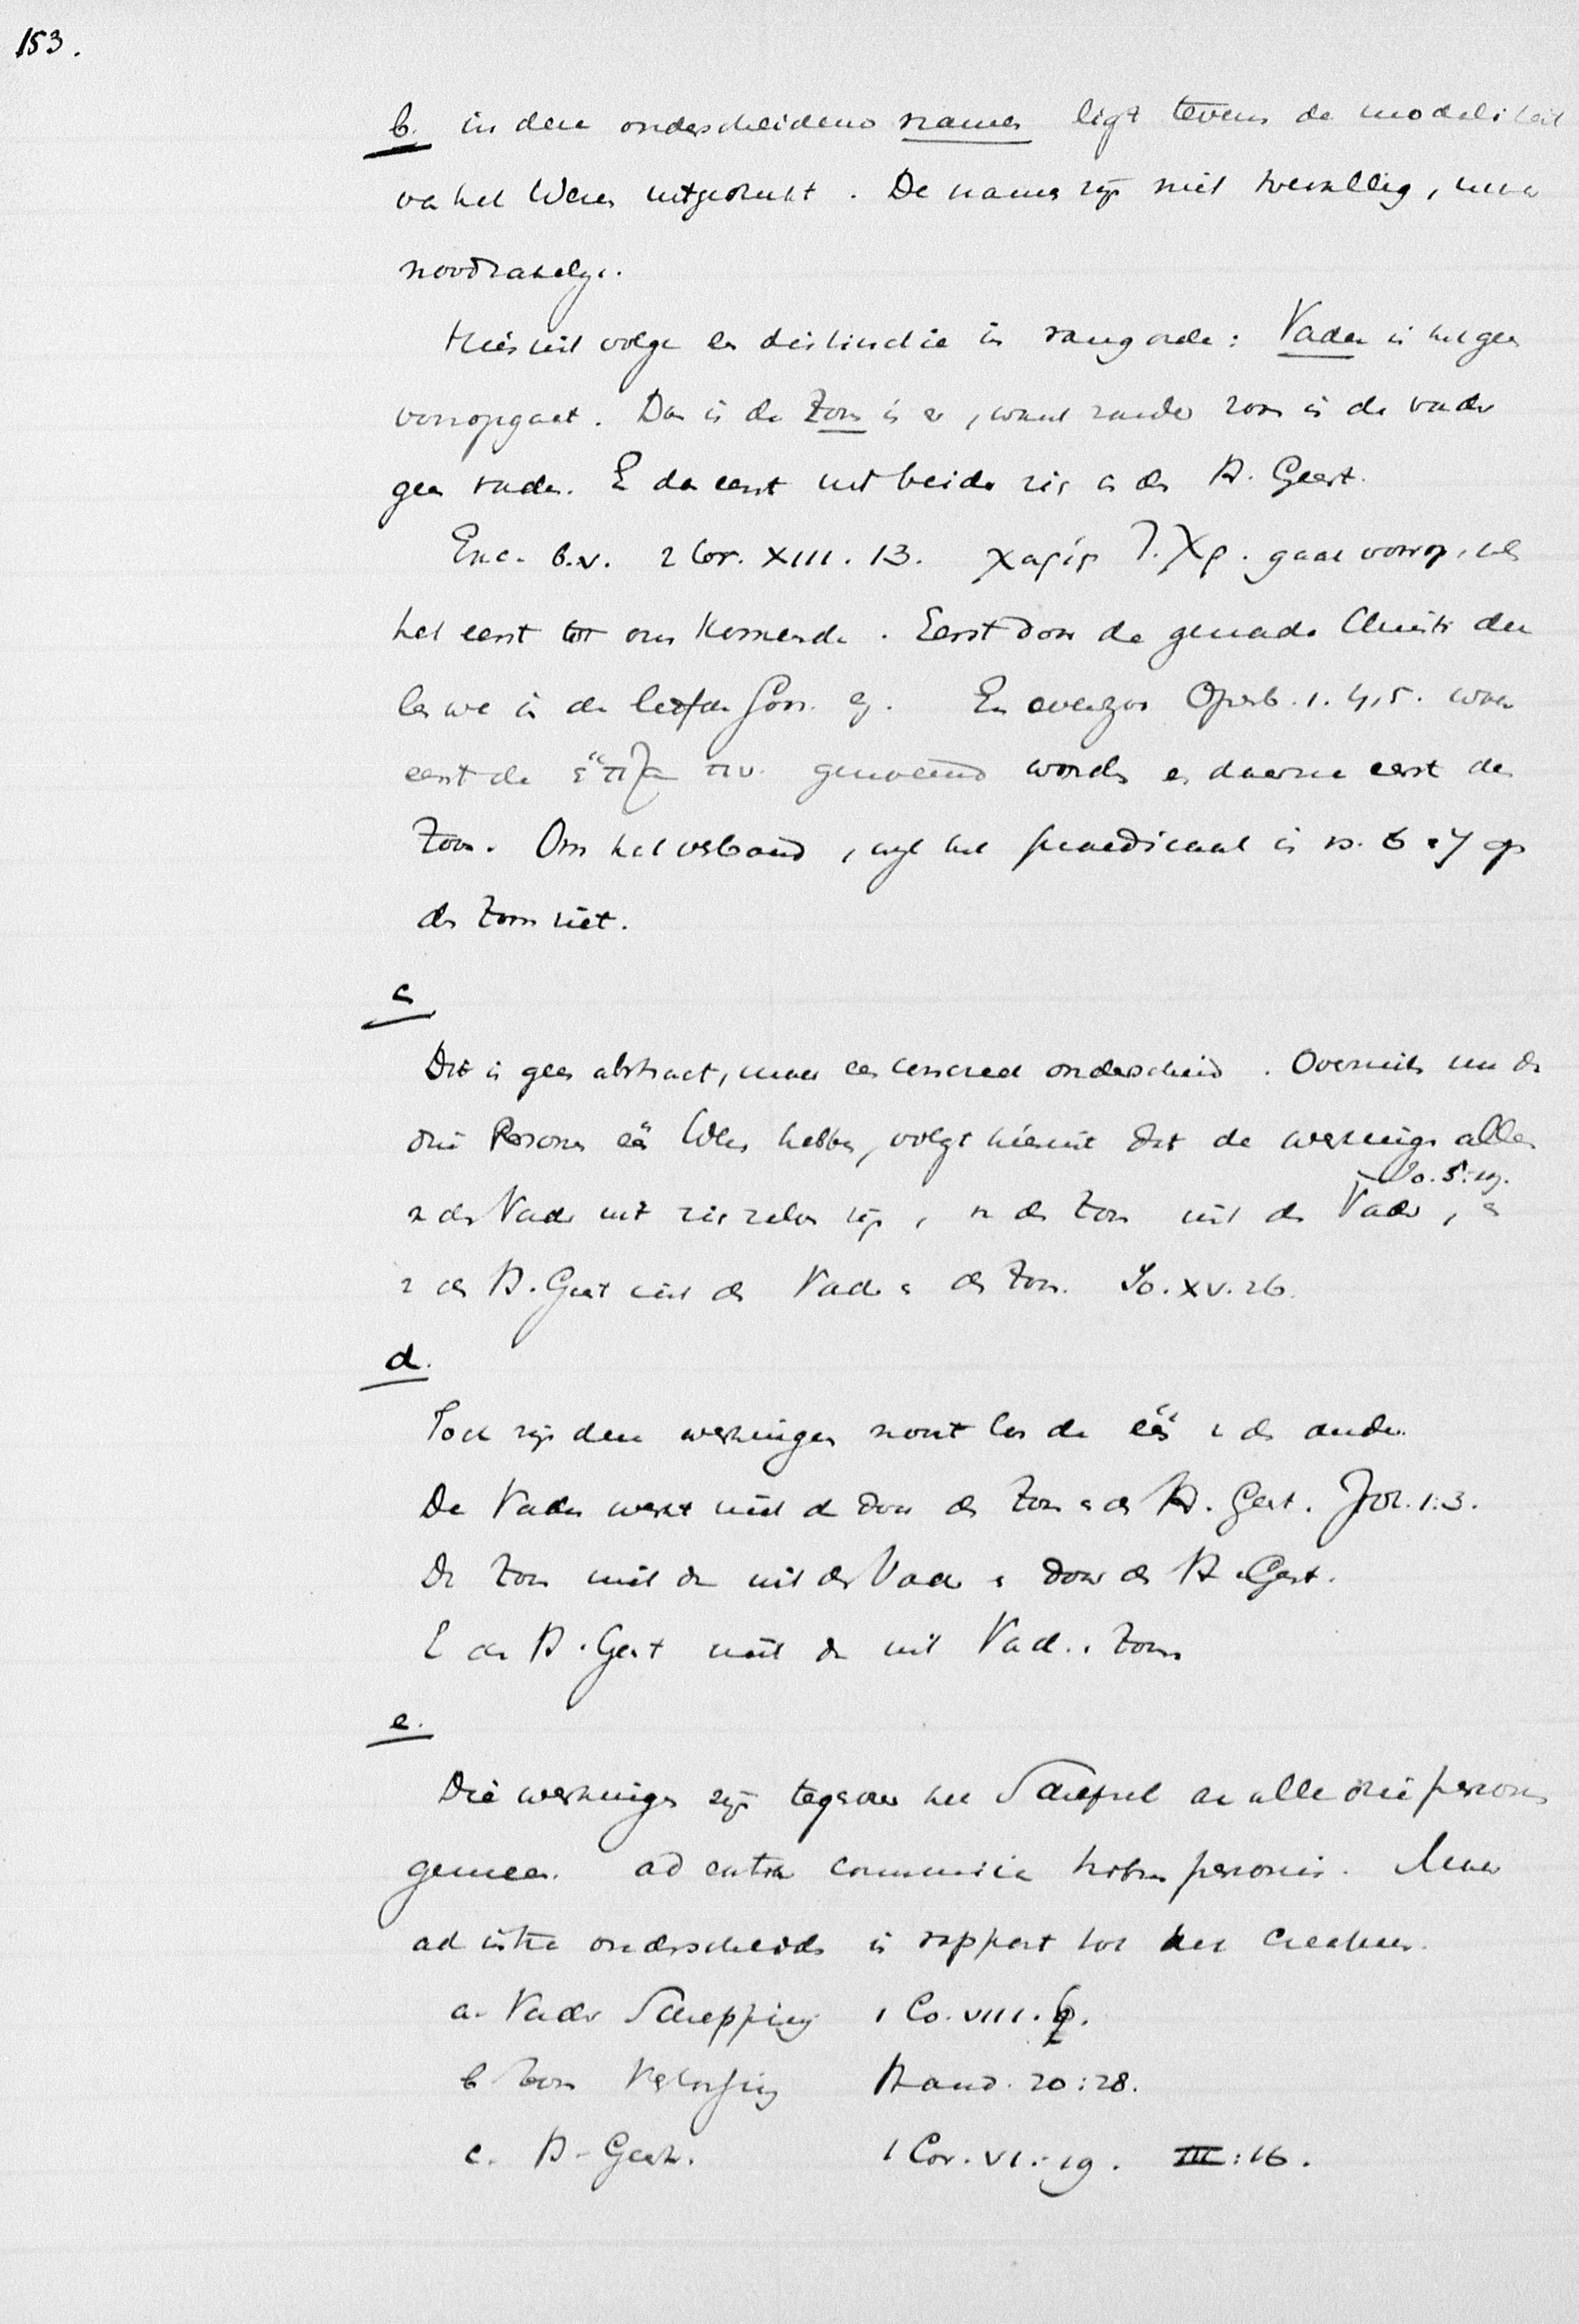 153.
b. in deze onderscheidene namen ligt tevens de modaliteit
van het Wezen uitgedrukt. De namen zijn niet toevallig, maar
noodzakelijk.
Hieruit volgt een distinctie in rangorde: Vader is hetgeen
vooropgaat. Dan is de Zoon is er, want zonder zoon is de vader
geen vader. En dan eerst uit beide zie is de H. Geest.
Enc. b.v. 2 Cor. XIII. 13. χαρις Ι. Χρ. gaat voorop, als
het eerst tot ons komende. Eerst door de genade Christi dee
len we in de liefde Gods. En evenzoo Openb. 1. 4, 5. waar
eerst de ἑπτα πν. genoemd worden en daarna eerst de
Zoon. Om het verband, wijl het praedicaat in vs. 6 & 7 op
den Zoon ziet.
c
Dit is geen abstract, maar een concreet onderscheid. Overmits nu de
drie Personen één Wezen hebben, volgt hieruit dat de werkingen alleen
v. den Vader uit zich zelven zijn, v. den Zoon uit den Vader, en
Jo. 5:19.
v. den H. Geest uit den Vader & den Zoon. Jo. XV. 26.
d.
Toch zijn deze werkingen nooit los de één v. de ander.
De Vader werkt nooit dan door den Zoon & den H. Geest. Joh. 1:3.
De Zoon nooit dan uit den Vader & door den H. Geest.
En de H. Geest nooit dan uit Vader & Zoon
e.
Die werkingen zijn tegenover het Schepsel aan alle drie personen
gemeen. ad extra communia tribus personis. Maar
ad intra onderscheiden in rapport tot het creatuur.
a. Vader Schepping 1 Co. VIII. 6.
b Zoon Verlossing Hand. 20:28.
c. H. Geest. 1 Cor. VI:19. III:16.